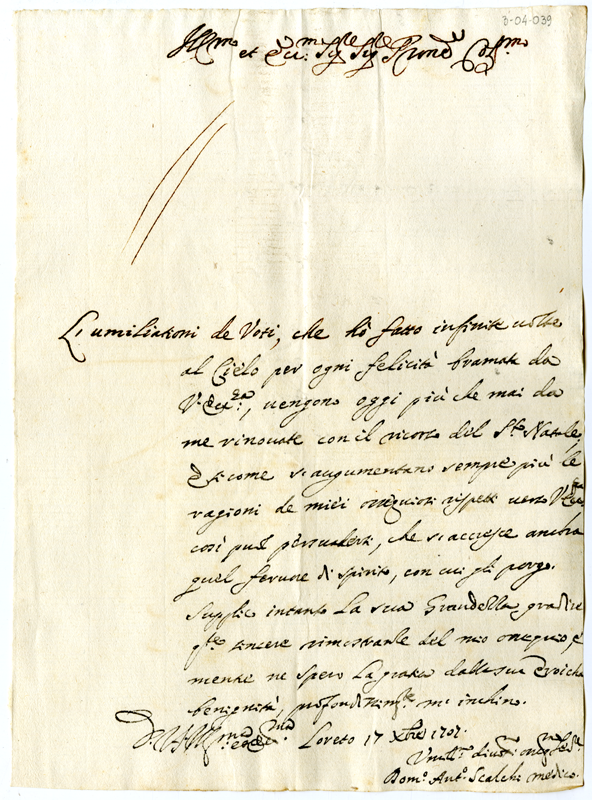 3-04-039
Ill.mo et Ecc.mo Sig.re Sig.re Pron.e Col.mo
L'umiliationi de Voti, che hò fatto infinite uolte
al Cielo per ogni felicità bramata da
V. Ecc.za, uengono oggi più che mai da
me rinouate con il ricorso del S.to Natale,
E si come si augumentano sempre più le
ragioni de miei ossequiosi rispetti uerso V. Ecc.za
così può persuadersi, che si accresce ancora
quel feruore di spirito, con cui gli porgo.
Supplico intanto La sua Grandezza gradire
q.te sincere rimostranze del mio ossequio, e
mentre ne spero La gratia dalla sua Eroicha
benignità, profondissim.te m'inchino.
D. V. Ill.ma et Ecc.ma Loreto 17 Xbre 1707.
Vmil.o diuot.o osseq.mo Se.re
Dom.o Ant.o Scalchi medico.